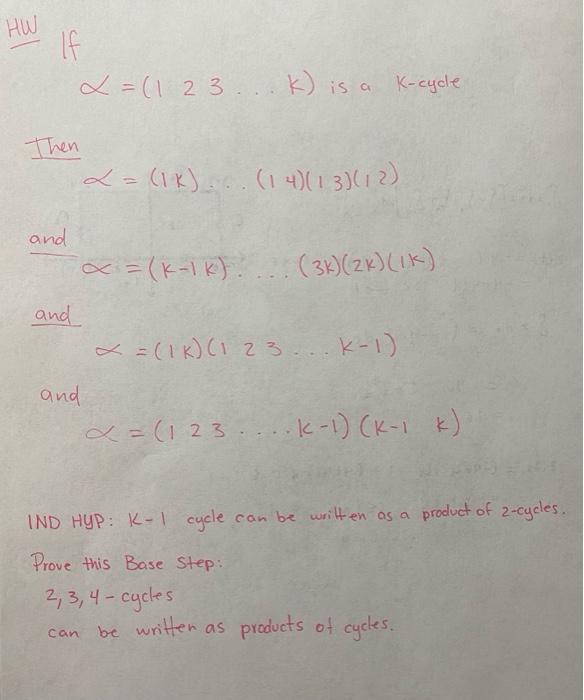 HW
If
α = (1 2 3 ... k) is a K-cycle
Then
α = (1k) ... (14)(13)(12)
and
α = (k-1 k) .... (3k)(2k)(1k)
and
α = (1k)(1 2 3 ... k-1)
and
α = (1 2 3 .... k-1) (k-1 k)
IND HYP: K-1 cycle can be written as a product of 2-cycles.
Prove this Base Step:
2, 3, 4 - cycles
can be written as products of cycles.